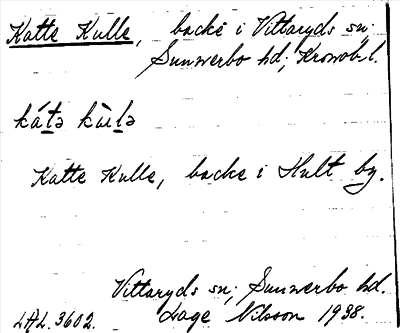 Katte Kulle, backe i Vittaryds sn;
Sunnerbo hd; Kronob. l.
Katte Kulle, backe i Hult by.
Vittaryds sn; Sunnerbo hd.
L.A.L. 3602. Lage Nilsson 1938.